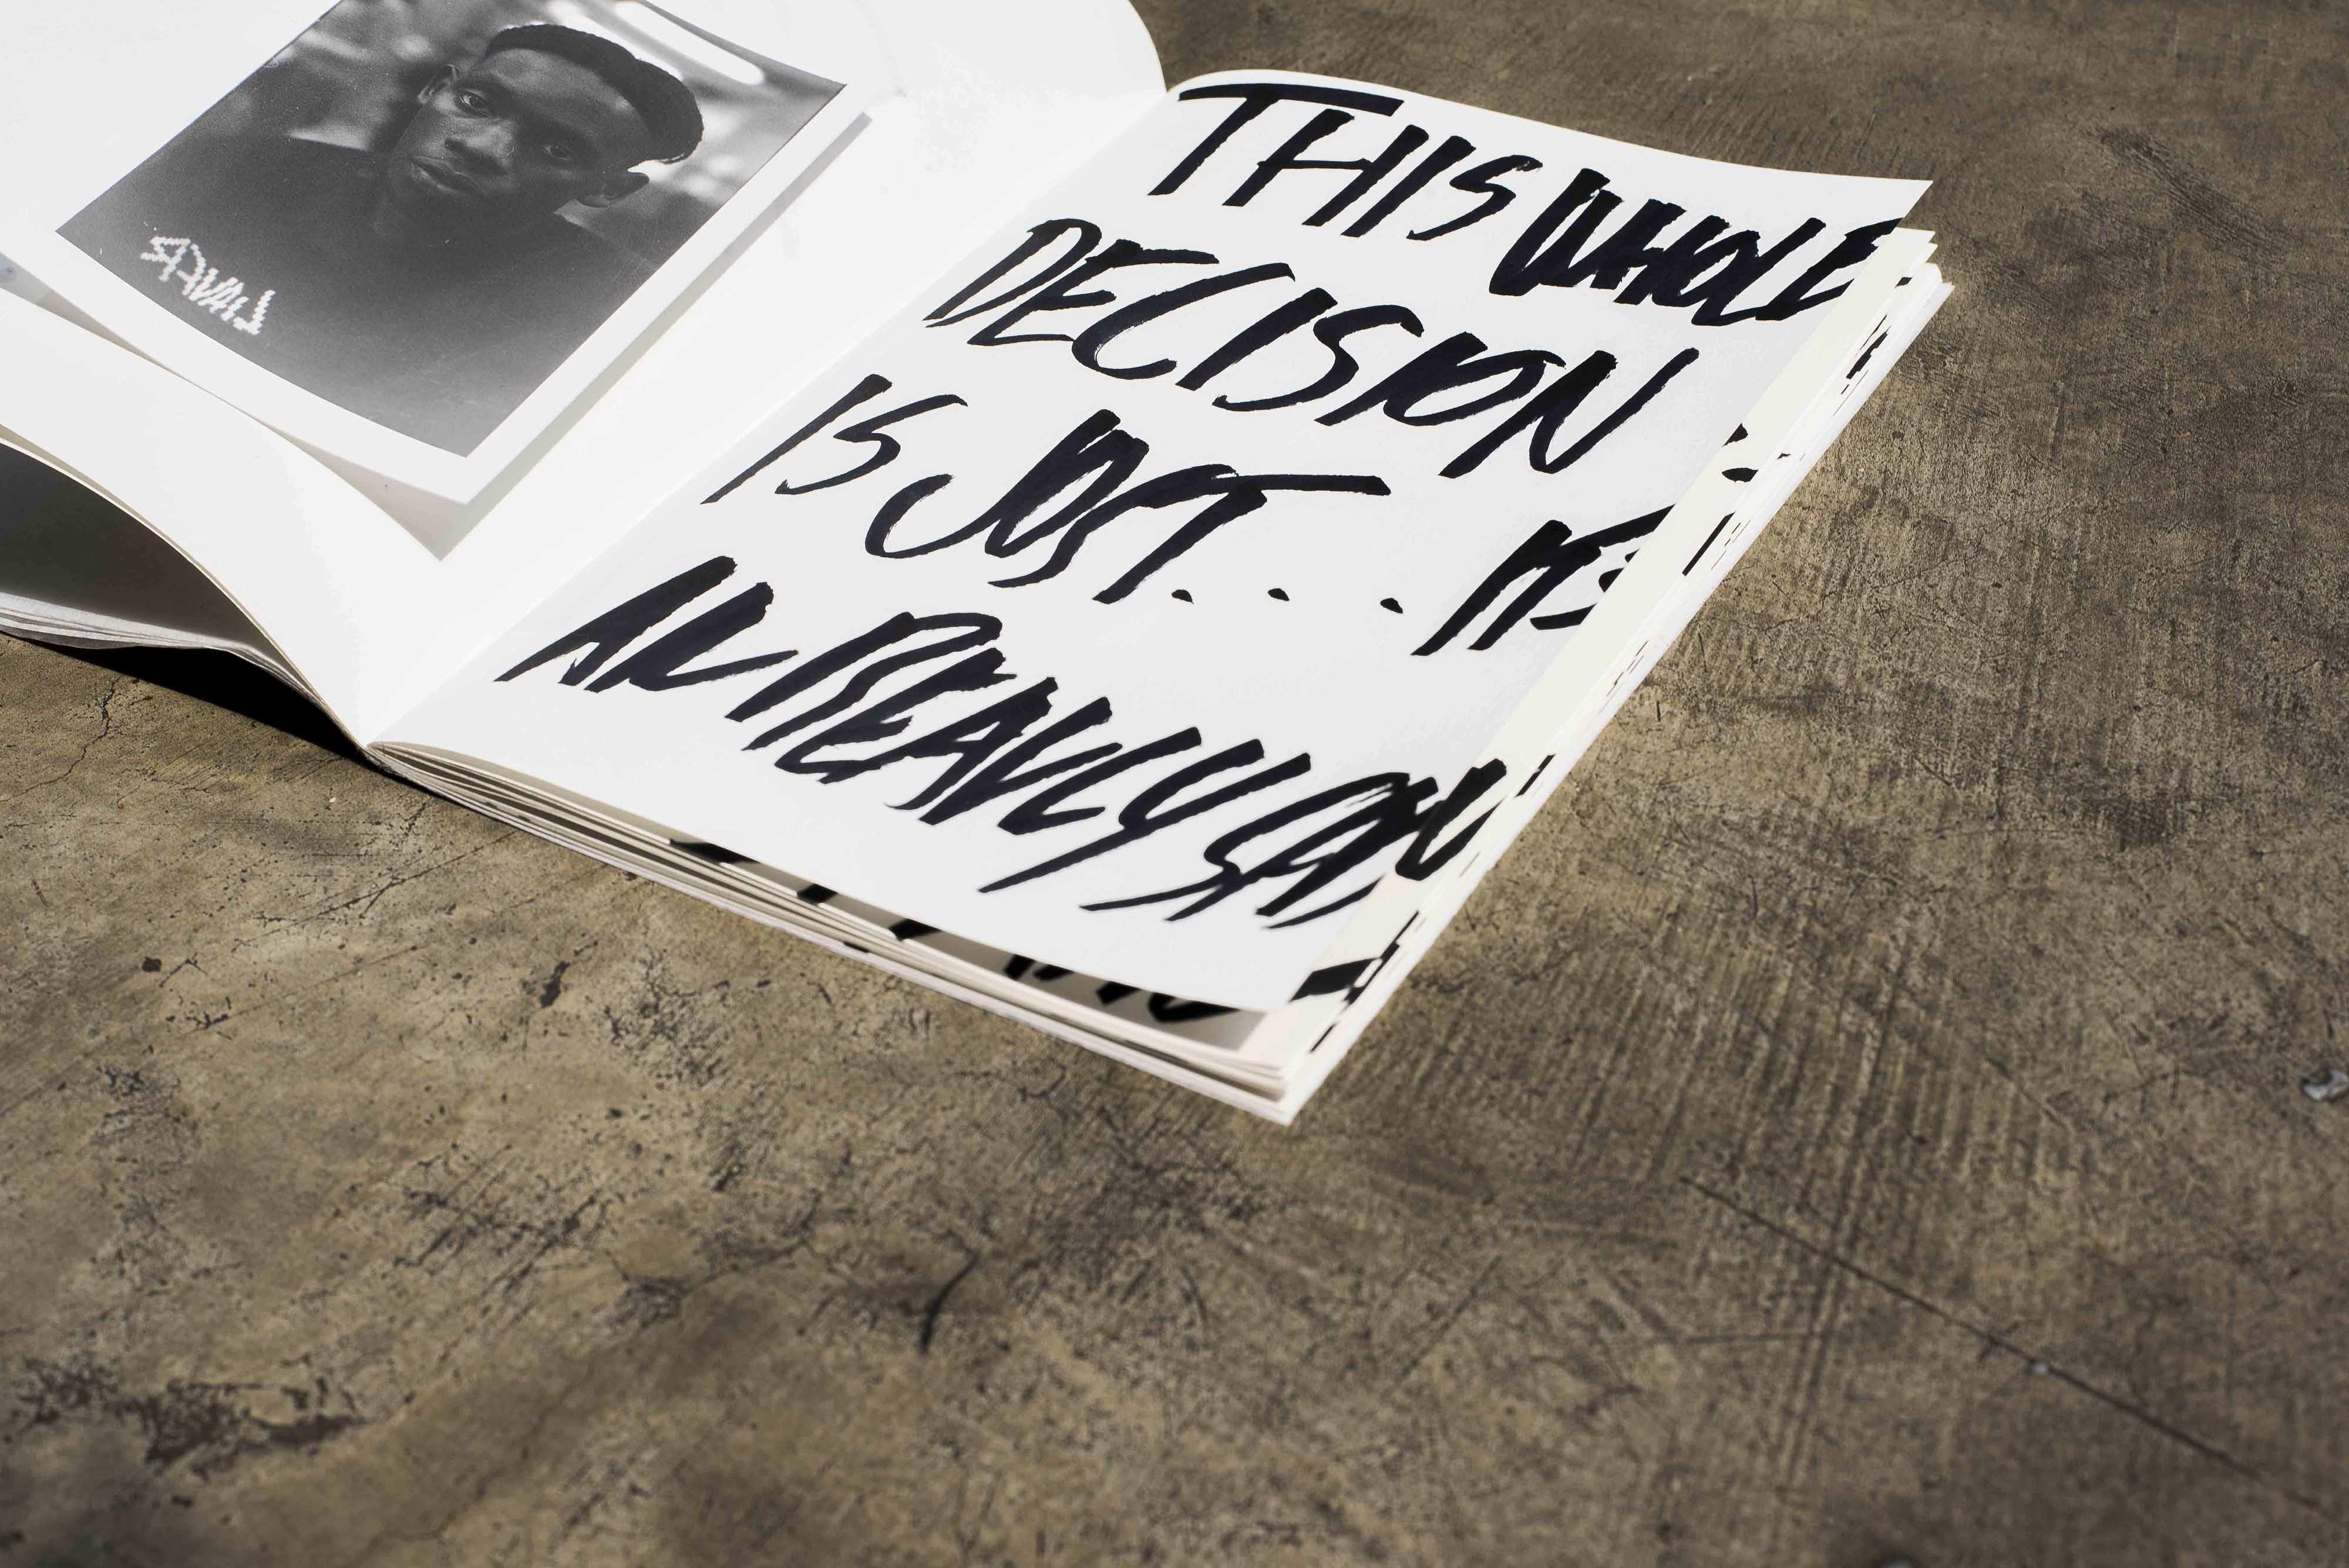 THIS WHOLE
DECISION
IS JUST... IT'S
ALL REALLY SAD